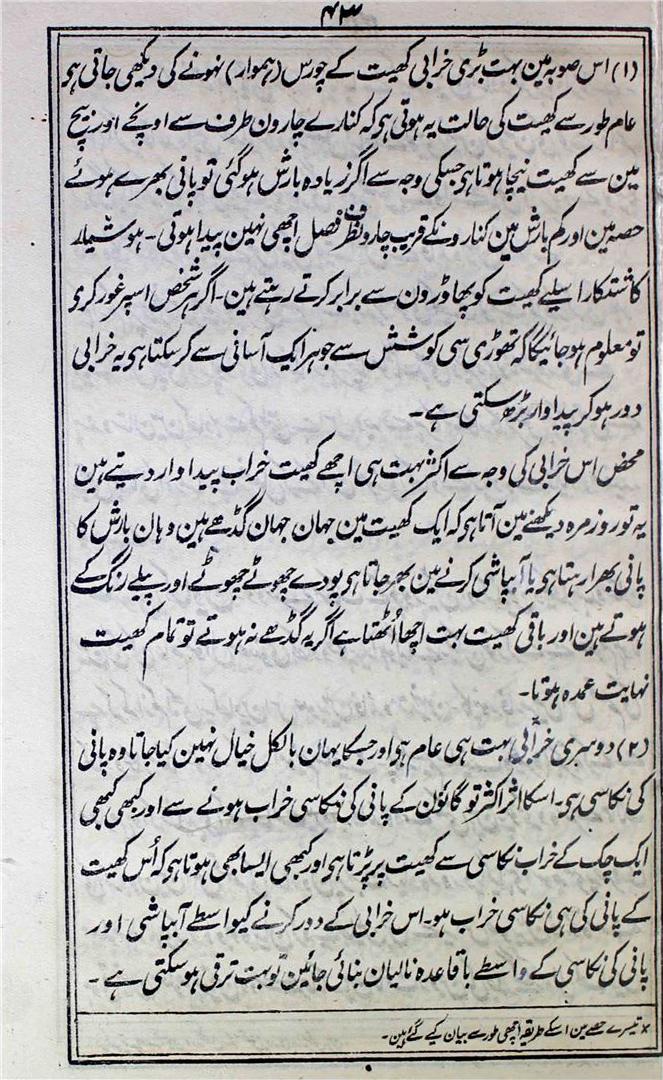 ۴۳
(۱) اس صوبہ مین بہت بڑی خرابی کھیت کے چورس (ہموار) نہونے کی دیکھی جاتی ہو
عام طور سے کھیت کی حالت یہ ہوتی ہو کہ کنارے چارون طرف سے اونچے اور بیچ
مین سے کھیت نیچا ہوتا ہی جسکی وجہ سے اگر زیادہ بارش ہو گئی تو پانی بھرے ہوئے
حصہ مین اور کم بارش مین کنارونکے قریب چارونطرف فصل اچھی نہین پیدا ہوتی - ہوشیار
کاشتکار اسلیے کھیت کو پھاوڑون سے برابر کرتے رہتے ہین - اگر ہر شخص اسپر غور کری
تو معلوم ہو جائیگا کہ تھوڑی سی کوشش سے جو ہر ایک آسانی سے کر سکتا ہی یہ خرابی
دور ہو کر پیداوار بڑھ سکتی ہے -
محض اس خرابی کی وجہ سے اکثر بہت ہی اچھے کھیت خراب پیداوار دیتے ہین
یہ تو روزمرہ دیکھنے مین آتا ہو کہ ایک کھیت مین جہان جہان گڈھے ہین وہان بارش کا
پانی بھرا رہتا ہو یا آبپاشی کرنے مین بھر جاتا ہو پودے چھوٹے چھوٹے اور پیلے رنگ کے
ہوتے ہین اور باقی کھیت بہت اچھا اُٹھتا ہے اگر یہ گڈھے نہ ہوتے تو تمام کھیت
نہایت عمدہ ہوتا -
(۲) دوسری خرابی بہت ہی عام ہو اور جسکا یہان بالکل خیال نہین کیا جاتا وہ پانی
کی نکاسی ہو - اسکا اثر اکثر تو گائون کے پانی کی نکاسی خراب ہونے سے اور کبھی کبھی
ایک چک کے خراب نکاسی سے کھیت پر پڑتا ہو اور کبھی ایسا بھی ہوتا ہو کہ اُس کھیت
کے پانی کی ہی نکاسی خراب ہو - اس خرابی کے دور کرنے کیواسطے آبپاشی اور
پانی کی نکاسی کے واسطے باقاعدہ نالیان بنائی جائین تو بہت ترقی ہو سکتی ہے -
× تیسرے حصے مین اسکے طریقہ اچھی طور سے بیان کیے گئے ہین -